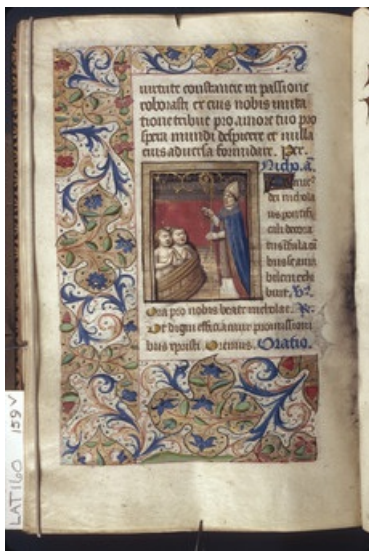 virtute constancie in passione
roborasti ex eius nobis imita
tione tribue pro amore tuo pro
spera mundi despicere et nulla
eius adversa formidare. Per.
Nicho. a.
dei nichola
us pontifi
cali decora
bunt. V.
Ora pro nobis beate nicholae. R.
Ut digni efficiamur promissioni
bus xpristi. Oremus. Oratio.
LAT160 159V